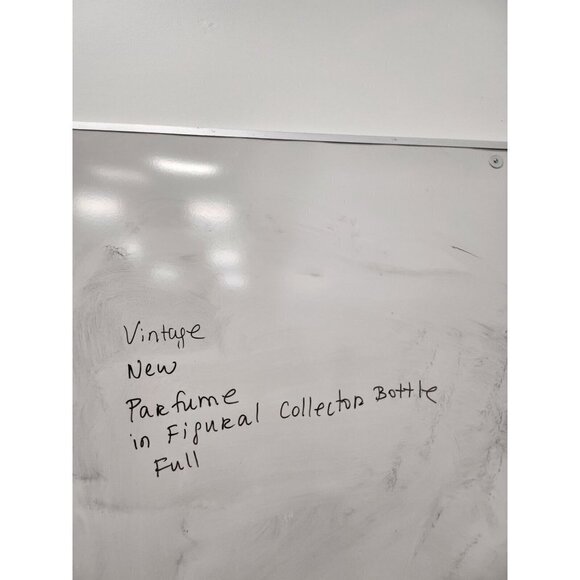 Vintage
New
Parfume
in Figural Collector Bottle
Full